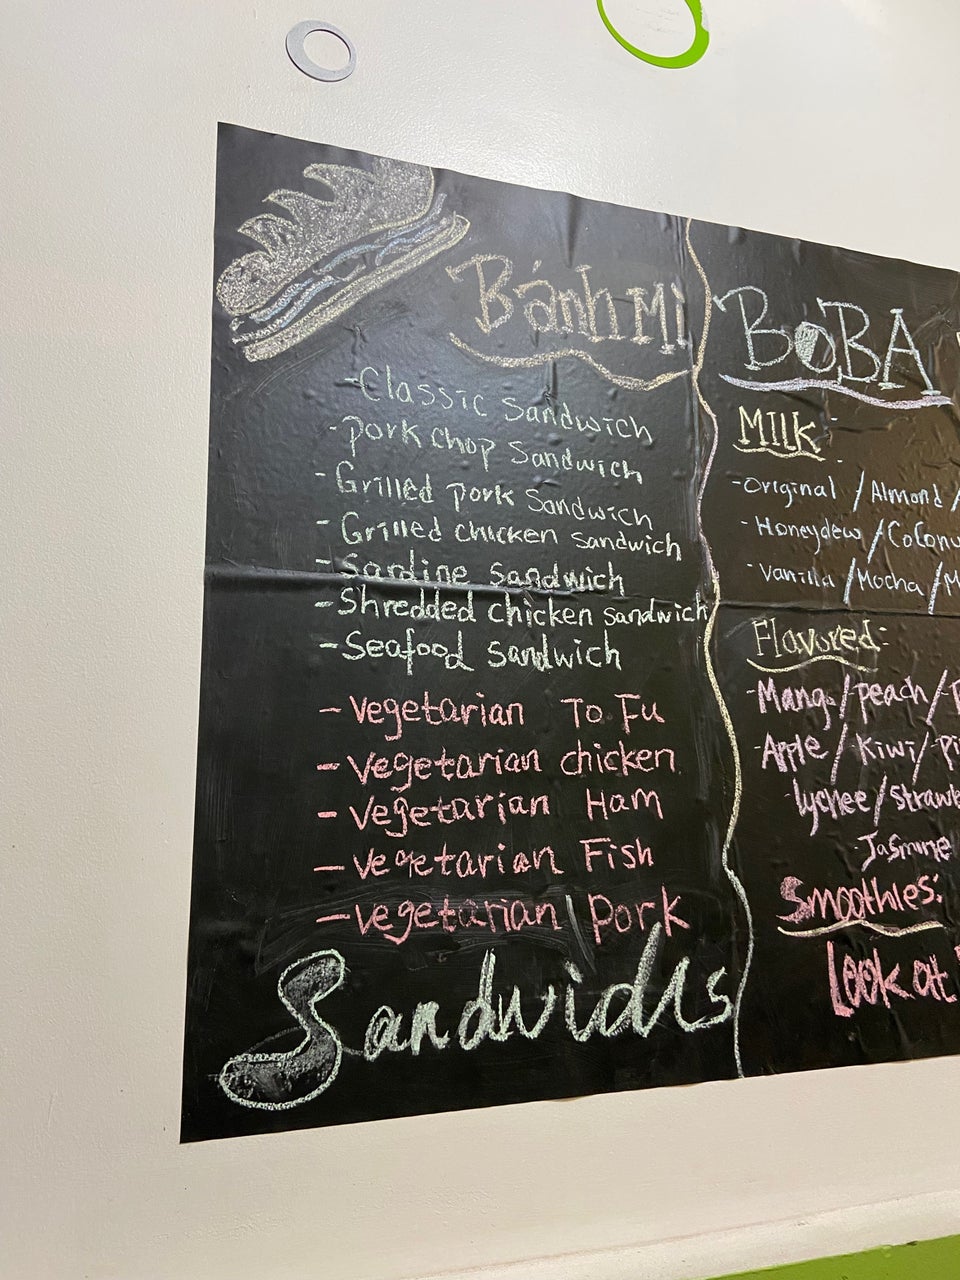 Bánh Mì
-Classic Sandwich
-Pork chop Sandwich
-Grilled pork Sandwich
-Grilled chicken sandwich
-Sardine sandwich
-Shredded chicken sandwich
-Seafood sandwich
-vegetarian To Fu
-vegetarian chicken
-vegetarian Ham
-vegetarian Fish
-vegetarian pork
Sandwichs
BOBA
Milk:
-Original / Almond /
-Honeydew / Coconu
-Vanilla / Mocha / M
Flavored:
-Mango / peach /
-Apple / Kiwi / pi
-lychee / strawb
-Jasmine
Smoothies:
Look at